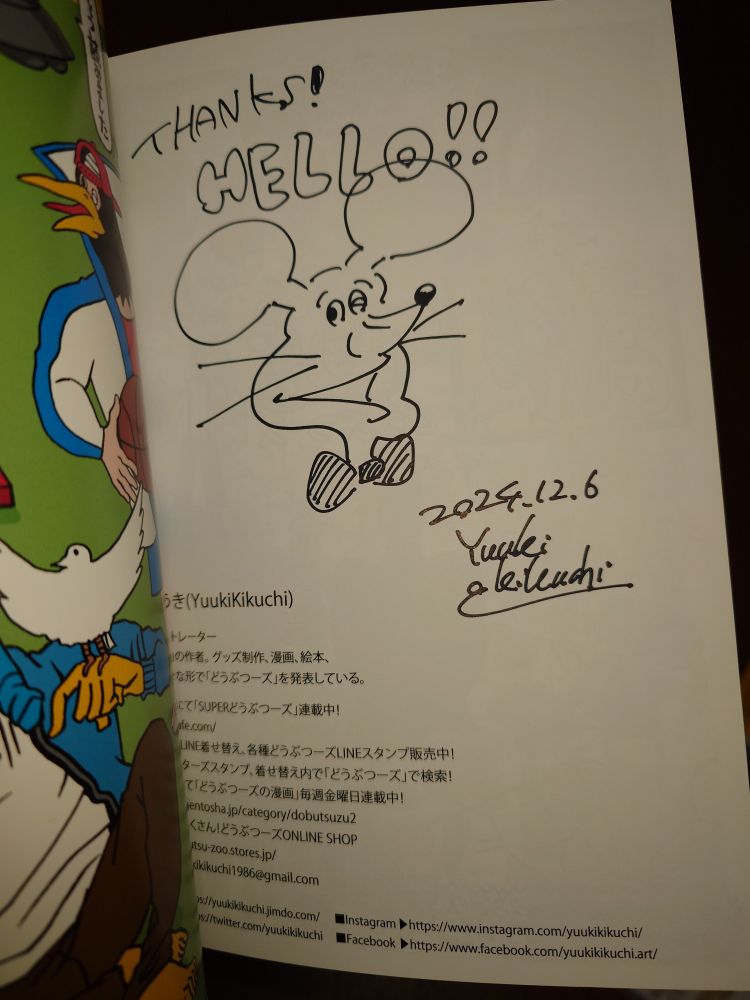 THANKS!
HELLO!!
2024.12.6
Yuuki
Kikuchi
うき(YuukiKikuchi)
トレーター
の作者。グッズ制作、漫画、絵本、
な形で「どうぶつーズ」を発表している。
にて「SUPERどうぶつーズ」連載中!
afe.com/
LINE着せ替え、各種どうぶつーズLINEスタンプ販売中!
ターズスタンプ、着せ替え内で「どうぶつーズ」で検索!
て「どうぶつーズの漫画」毎週金曜日連載中!
gentosha.jp/category/dobutsuzu2
くさん!どうぶつーズONLINE SHOP
utsu-zoo.stores.jp/
kikikuchi1986@gmail.com
ps://yuukikikuchi.jimdo.com/ ■Instagram ▶https://www.instagram.com/yuukikikuchi/
ps://twitter.com/yuukikikuchi ■Facebook ▶https://www.facebook.com/yuukikikuchi.art/